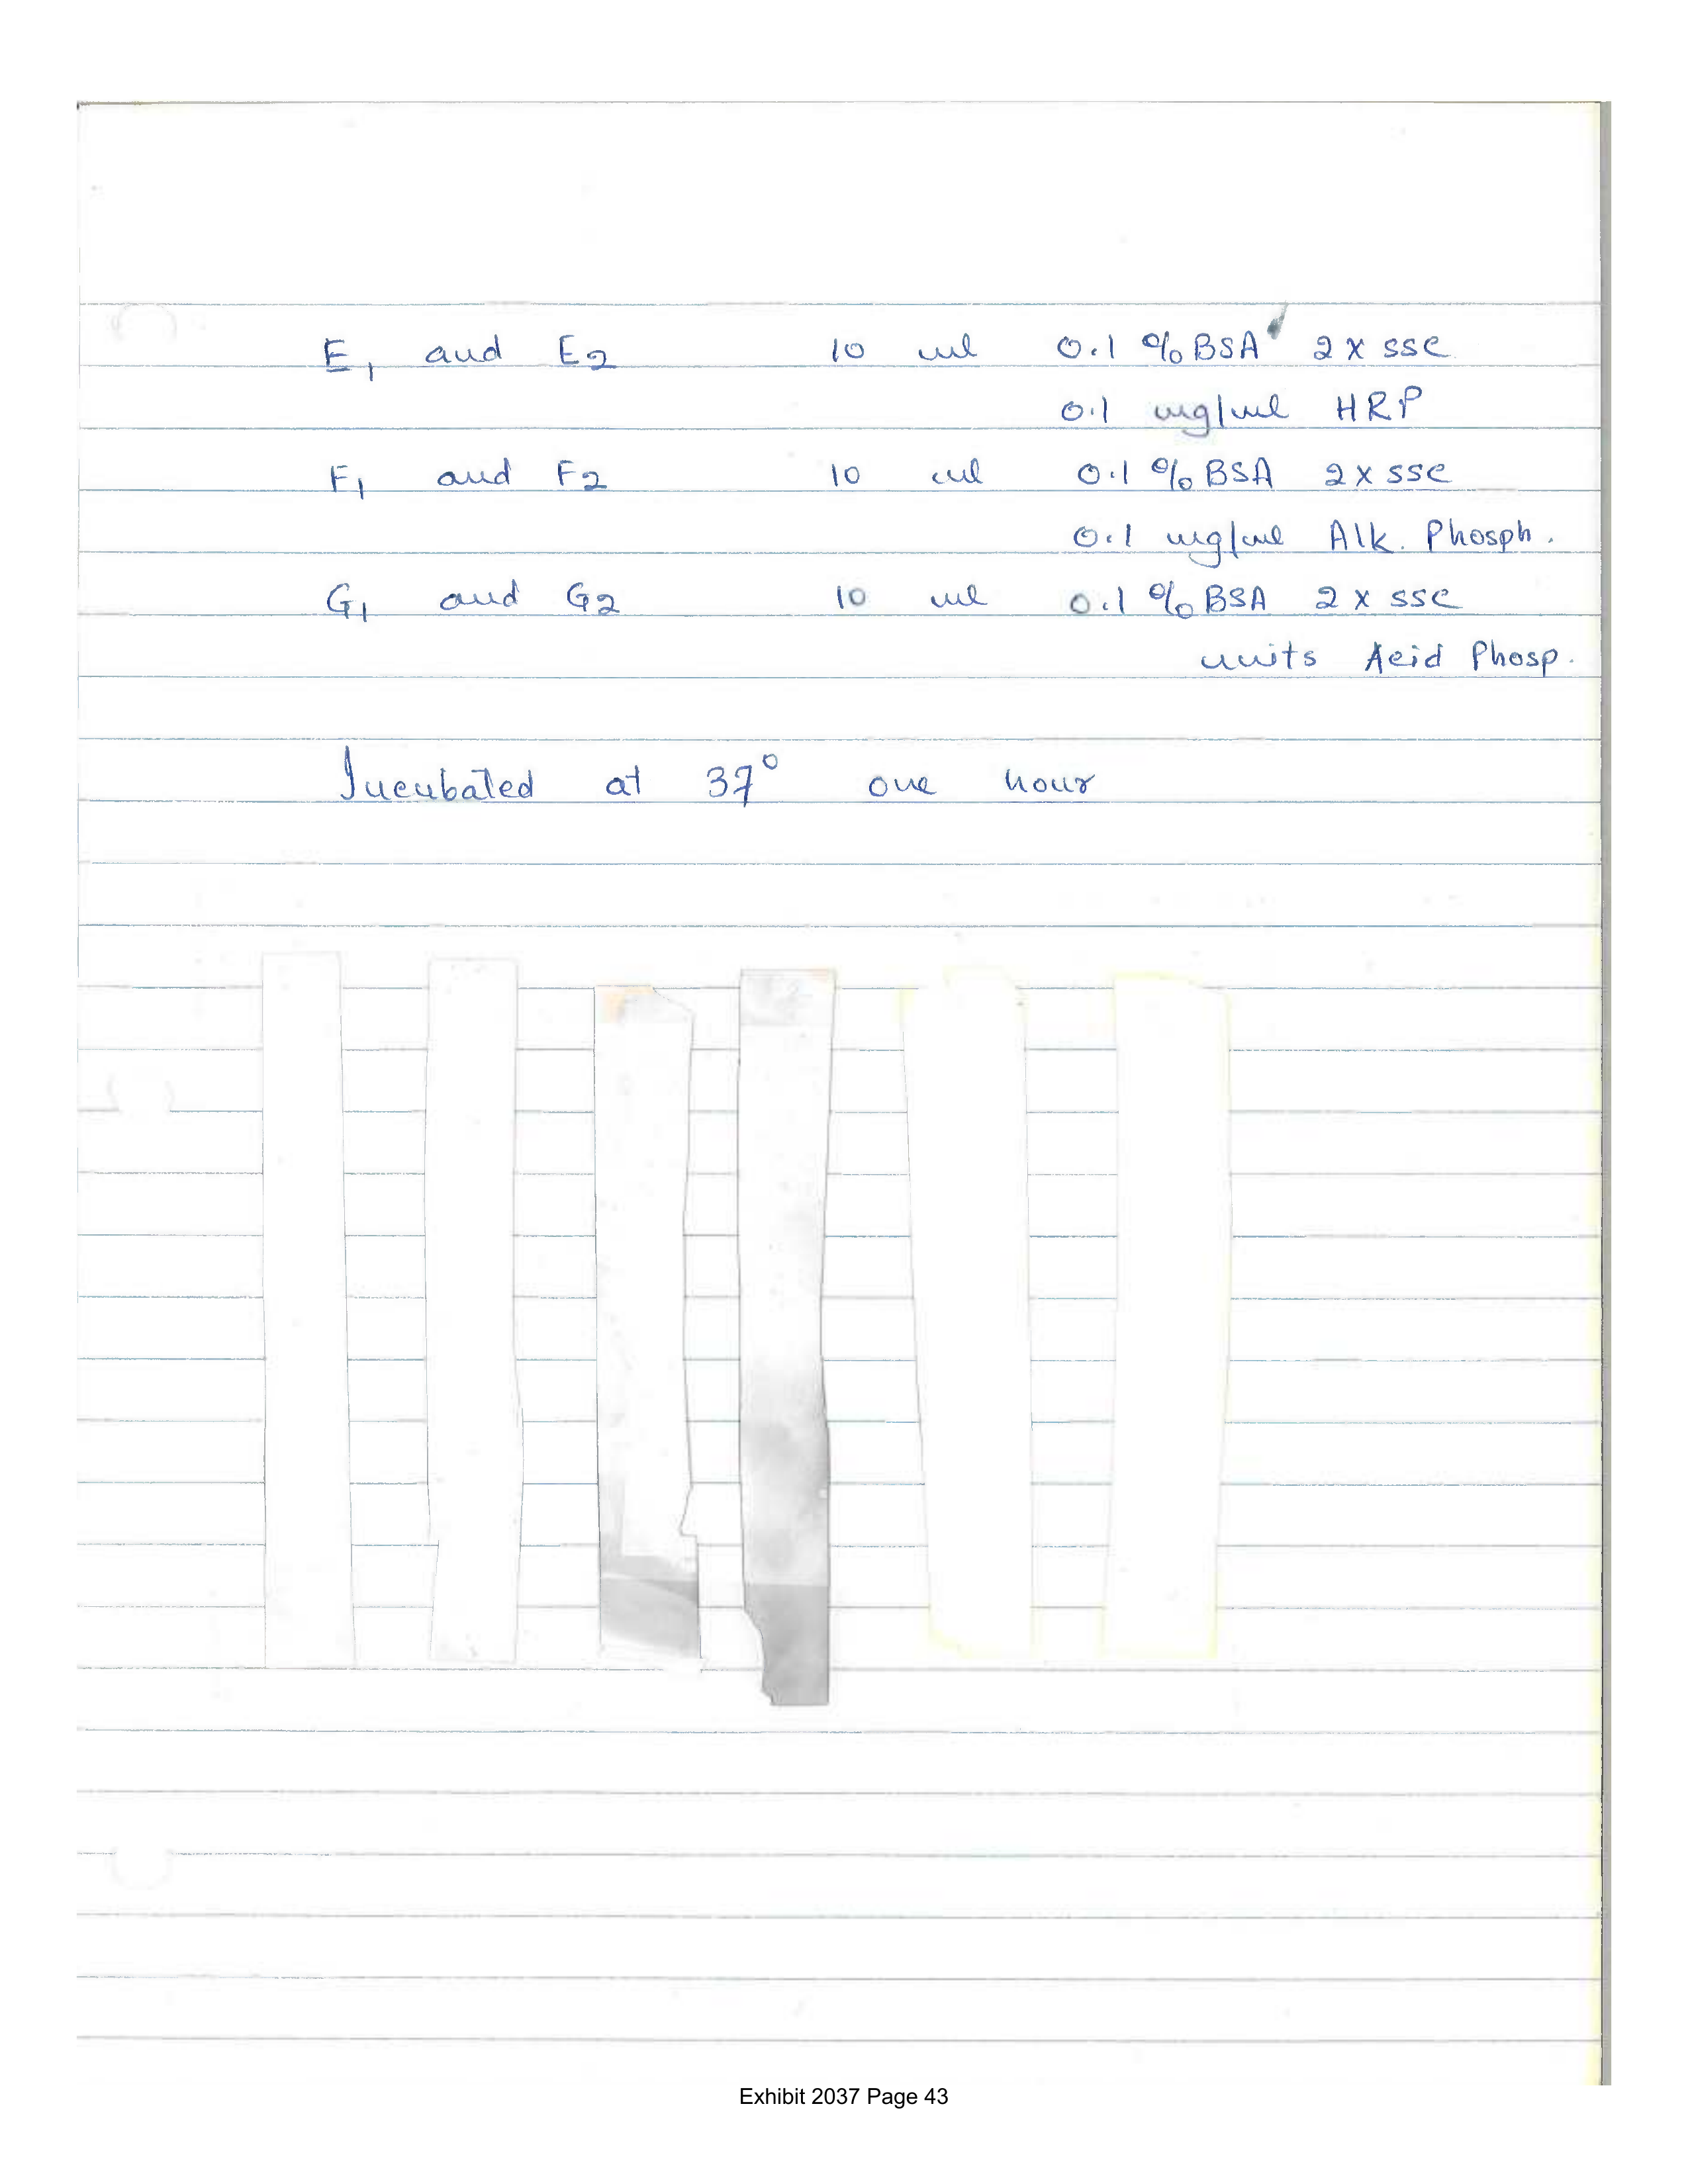 E1 and E2 10 ml 0.1 % BSA 2 x SSC
0.1 mg/ml HRP
F1 and F2 10 ml 0.1 % BSA 2 x SSC
0.1 mg/ml Alk. Phosph.
G1 and G2 10 ml 0.1 % BSA 2 x SSC
units Acid Phosp.
Incubated at 37° one hour
Exhibit 2037 Page 43